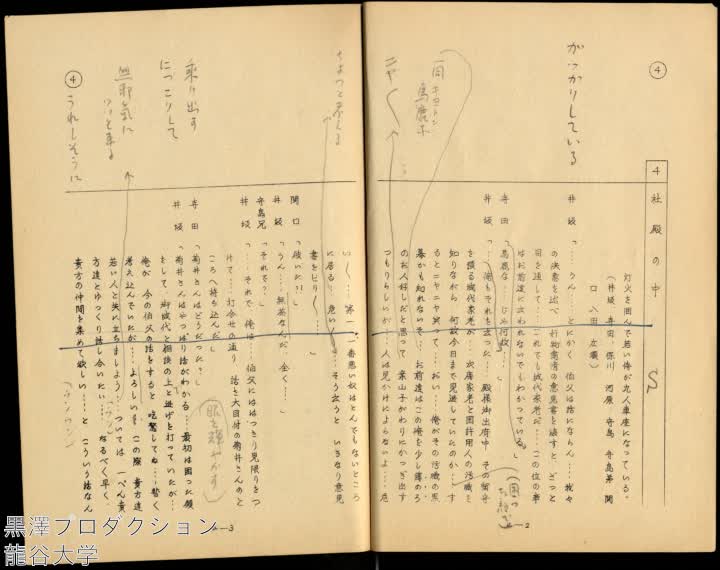 ④
4 社殿の中
がっかりしている
灯火を囲んで若い侍が九人車座になっている。
(井坂 寺田 保川 河原 寺島 寺島弟 関
口 八田 広瀬)
井坂「……うん……とにかく 伯父は話にならん……我々
の決意を述べ 打物
目を通して……これでも城代家老だ……この位の事
はお前達に云われないでもわかっている。」
寺田「馬鹿な……じゃ何故……」
井坂「俺もそれを云った……殿様御出府中 その留守
を預る城代家老が 次席家老と国許用人の汚職を
知りながら 何故今日まで見逃していたのか……す
るとニヤニヤ笑って……おい……俺がその汚職の黒
幕かも知れないぞ……お前達はこの俺を少し薄のろ
のお人好しだと思って 案山子がわりにかつぎ出す
つもりらしいが……人は見かけによらないよ……危
一同 キョトン
馬鹿な
ニヤ〱
4—2
④
ちょっと考える
乗り出す
にっこりして
無邪気に
うれしそうに
い〱……第一 一番悪い奴はとんでもないところ
に居る……危い〱……そう云うと いきなり意見
書をビリ〱……」
関口「破いた?!」
井坂「うん……無茶なんだ 全く……」
寺島兄「それで?」
井坂「……それで 俺は……伯父にははっきり見限りをつ
けて……打合せの通り 話を大目付の菊井さんのと
ころへ持ち込んだ」
寺田「菊井さんはどうだった?」
井坂「菊井さんはやっぱり話がわかる……最初は困った顔
をして……御城代と相談の上と逃げを打っていたが……
俺が 今の伯父の話をすると 吃驚してね……暫く
考え込んでいたが……よろしい この際 貴方達
若い人と共に立ちましょう……ついては 一ぺん貴
方達とゆっくり話し合いたい……なるべく早く
貴方の仲間を集めて欲しい……と こういう話なん
眼を輝やかす
4—3
黒澤プロダクション
龍谷大学